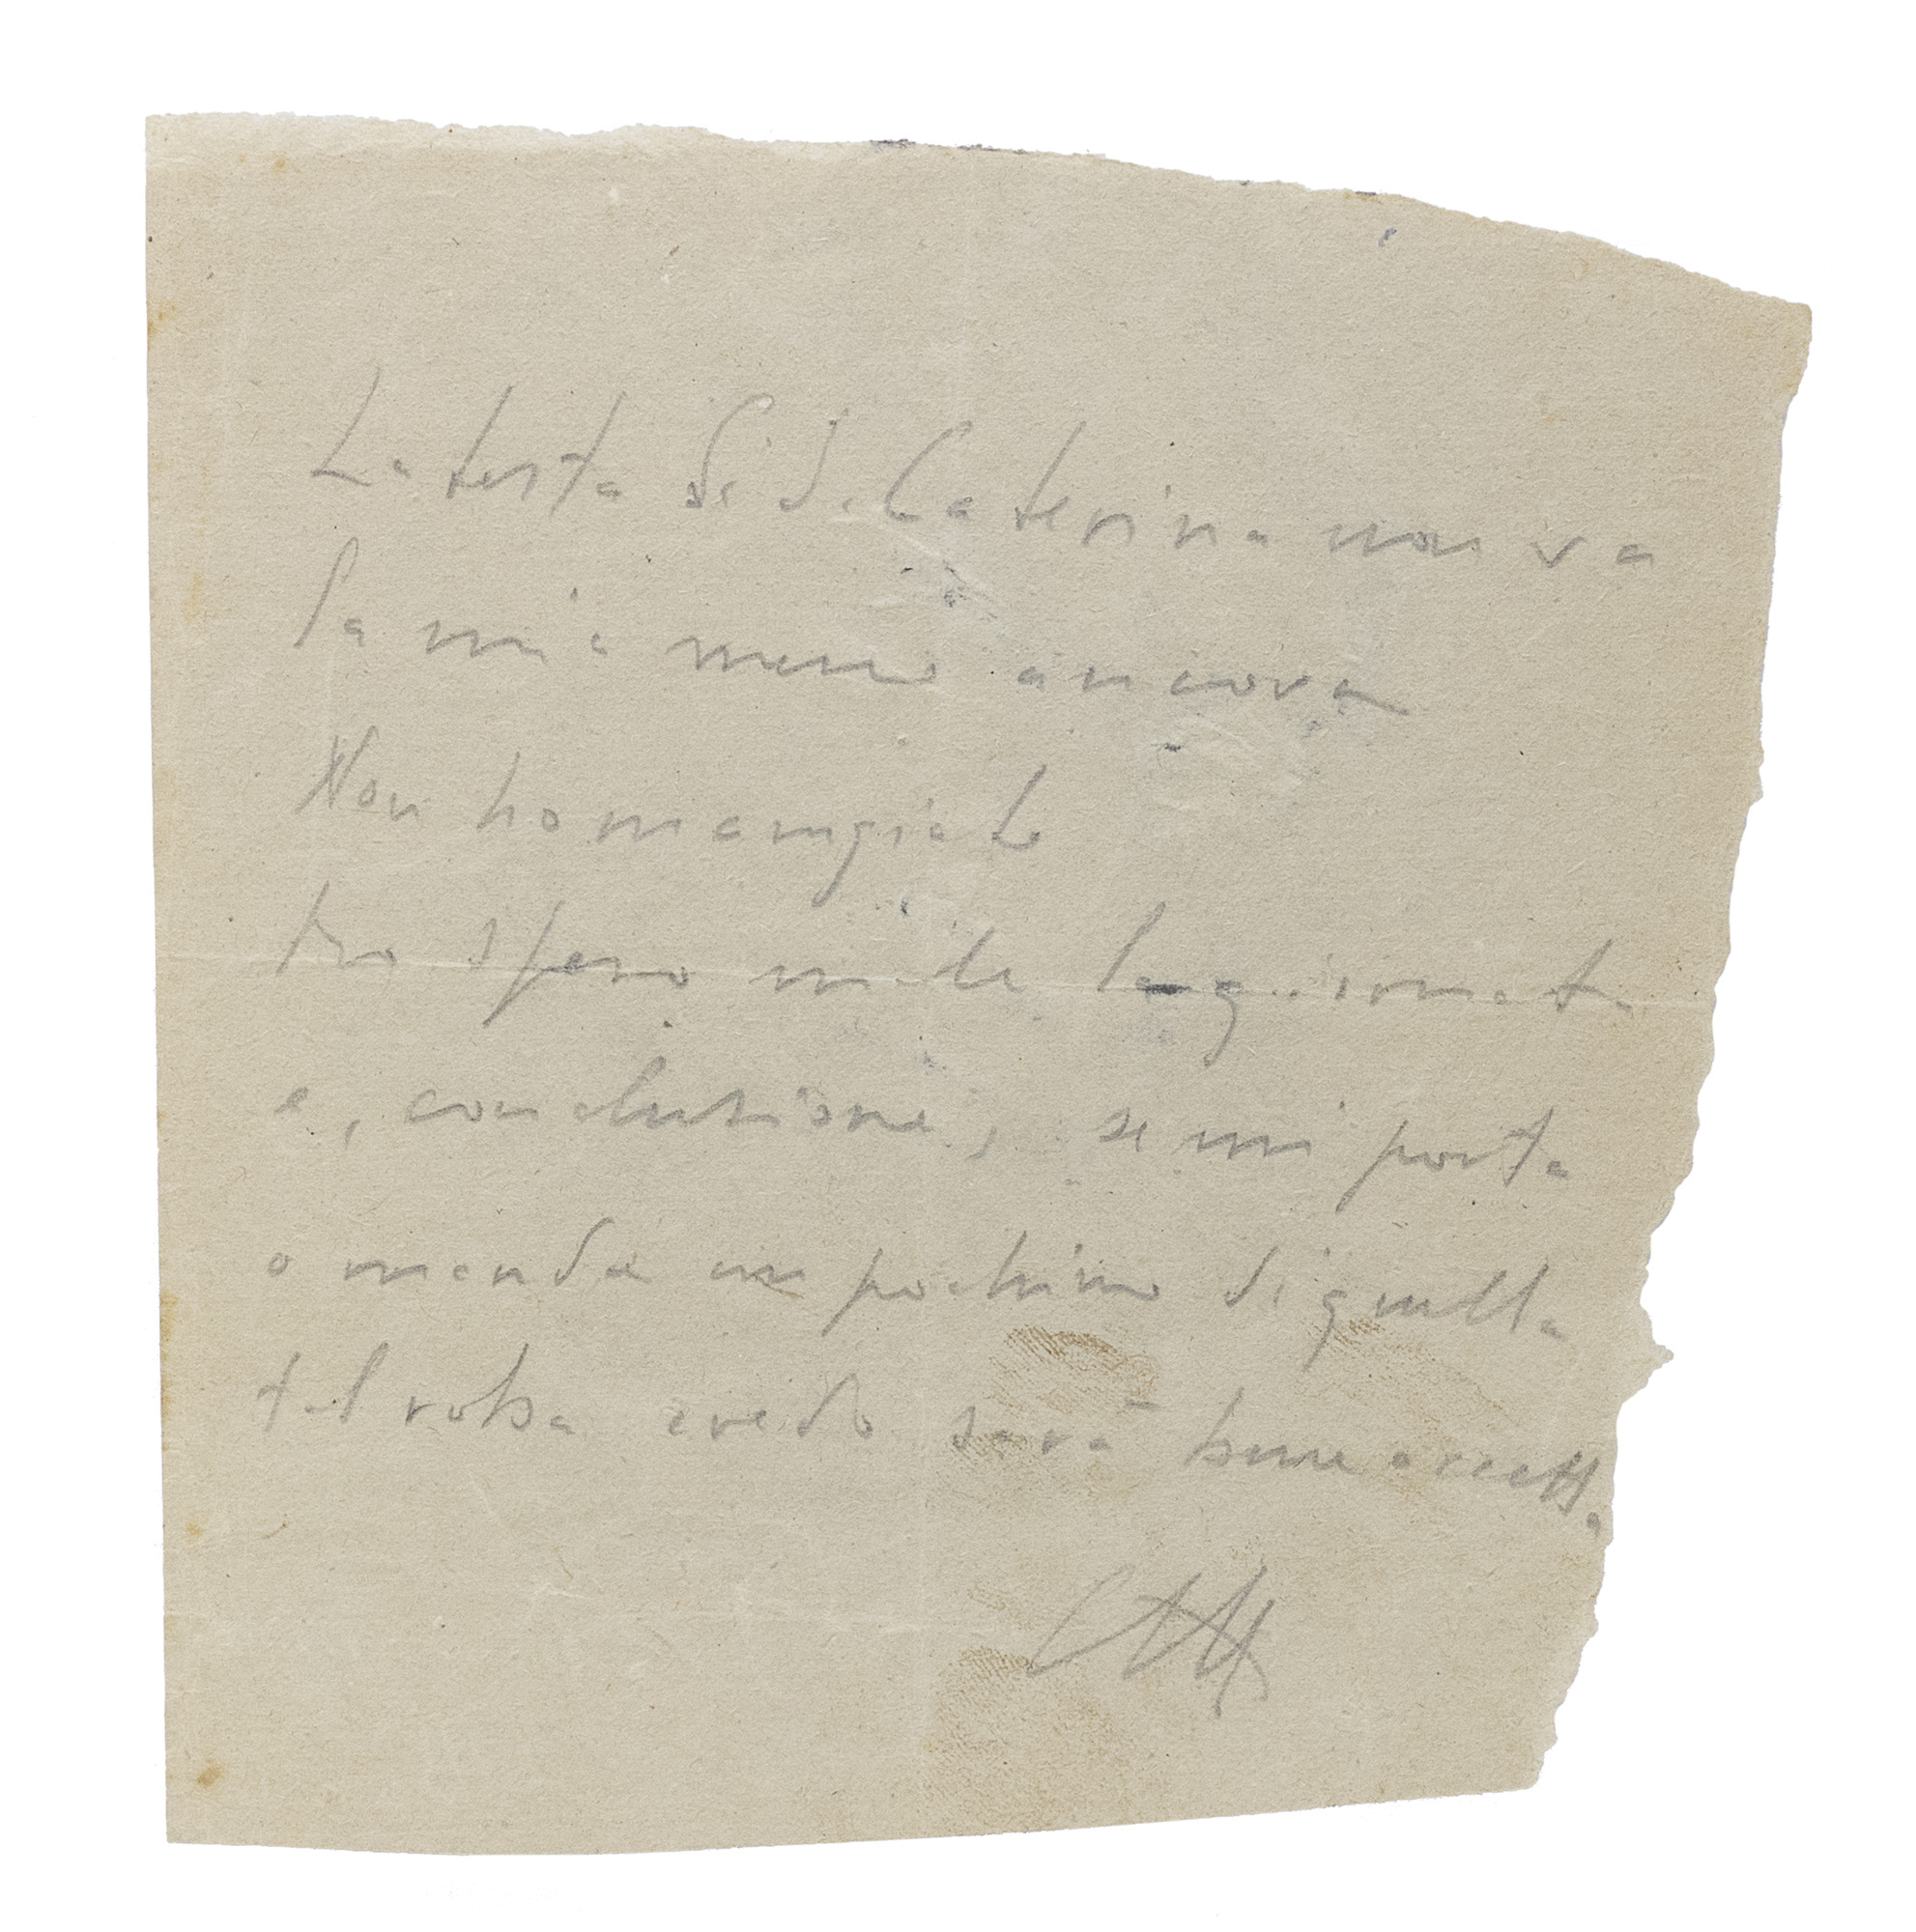 La testa di S. Caterina non va
la mia meno ancora
Non ho mangiato
ho spero male la giornata
e, conclusione, se mi porta
o manda un pochino di quella
tal roba credo sarà bene accetta